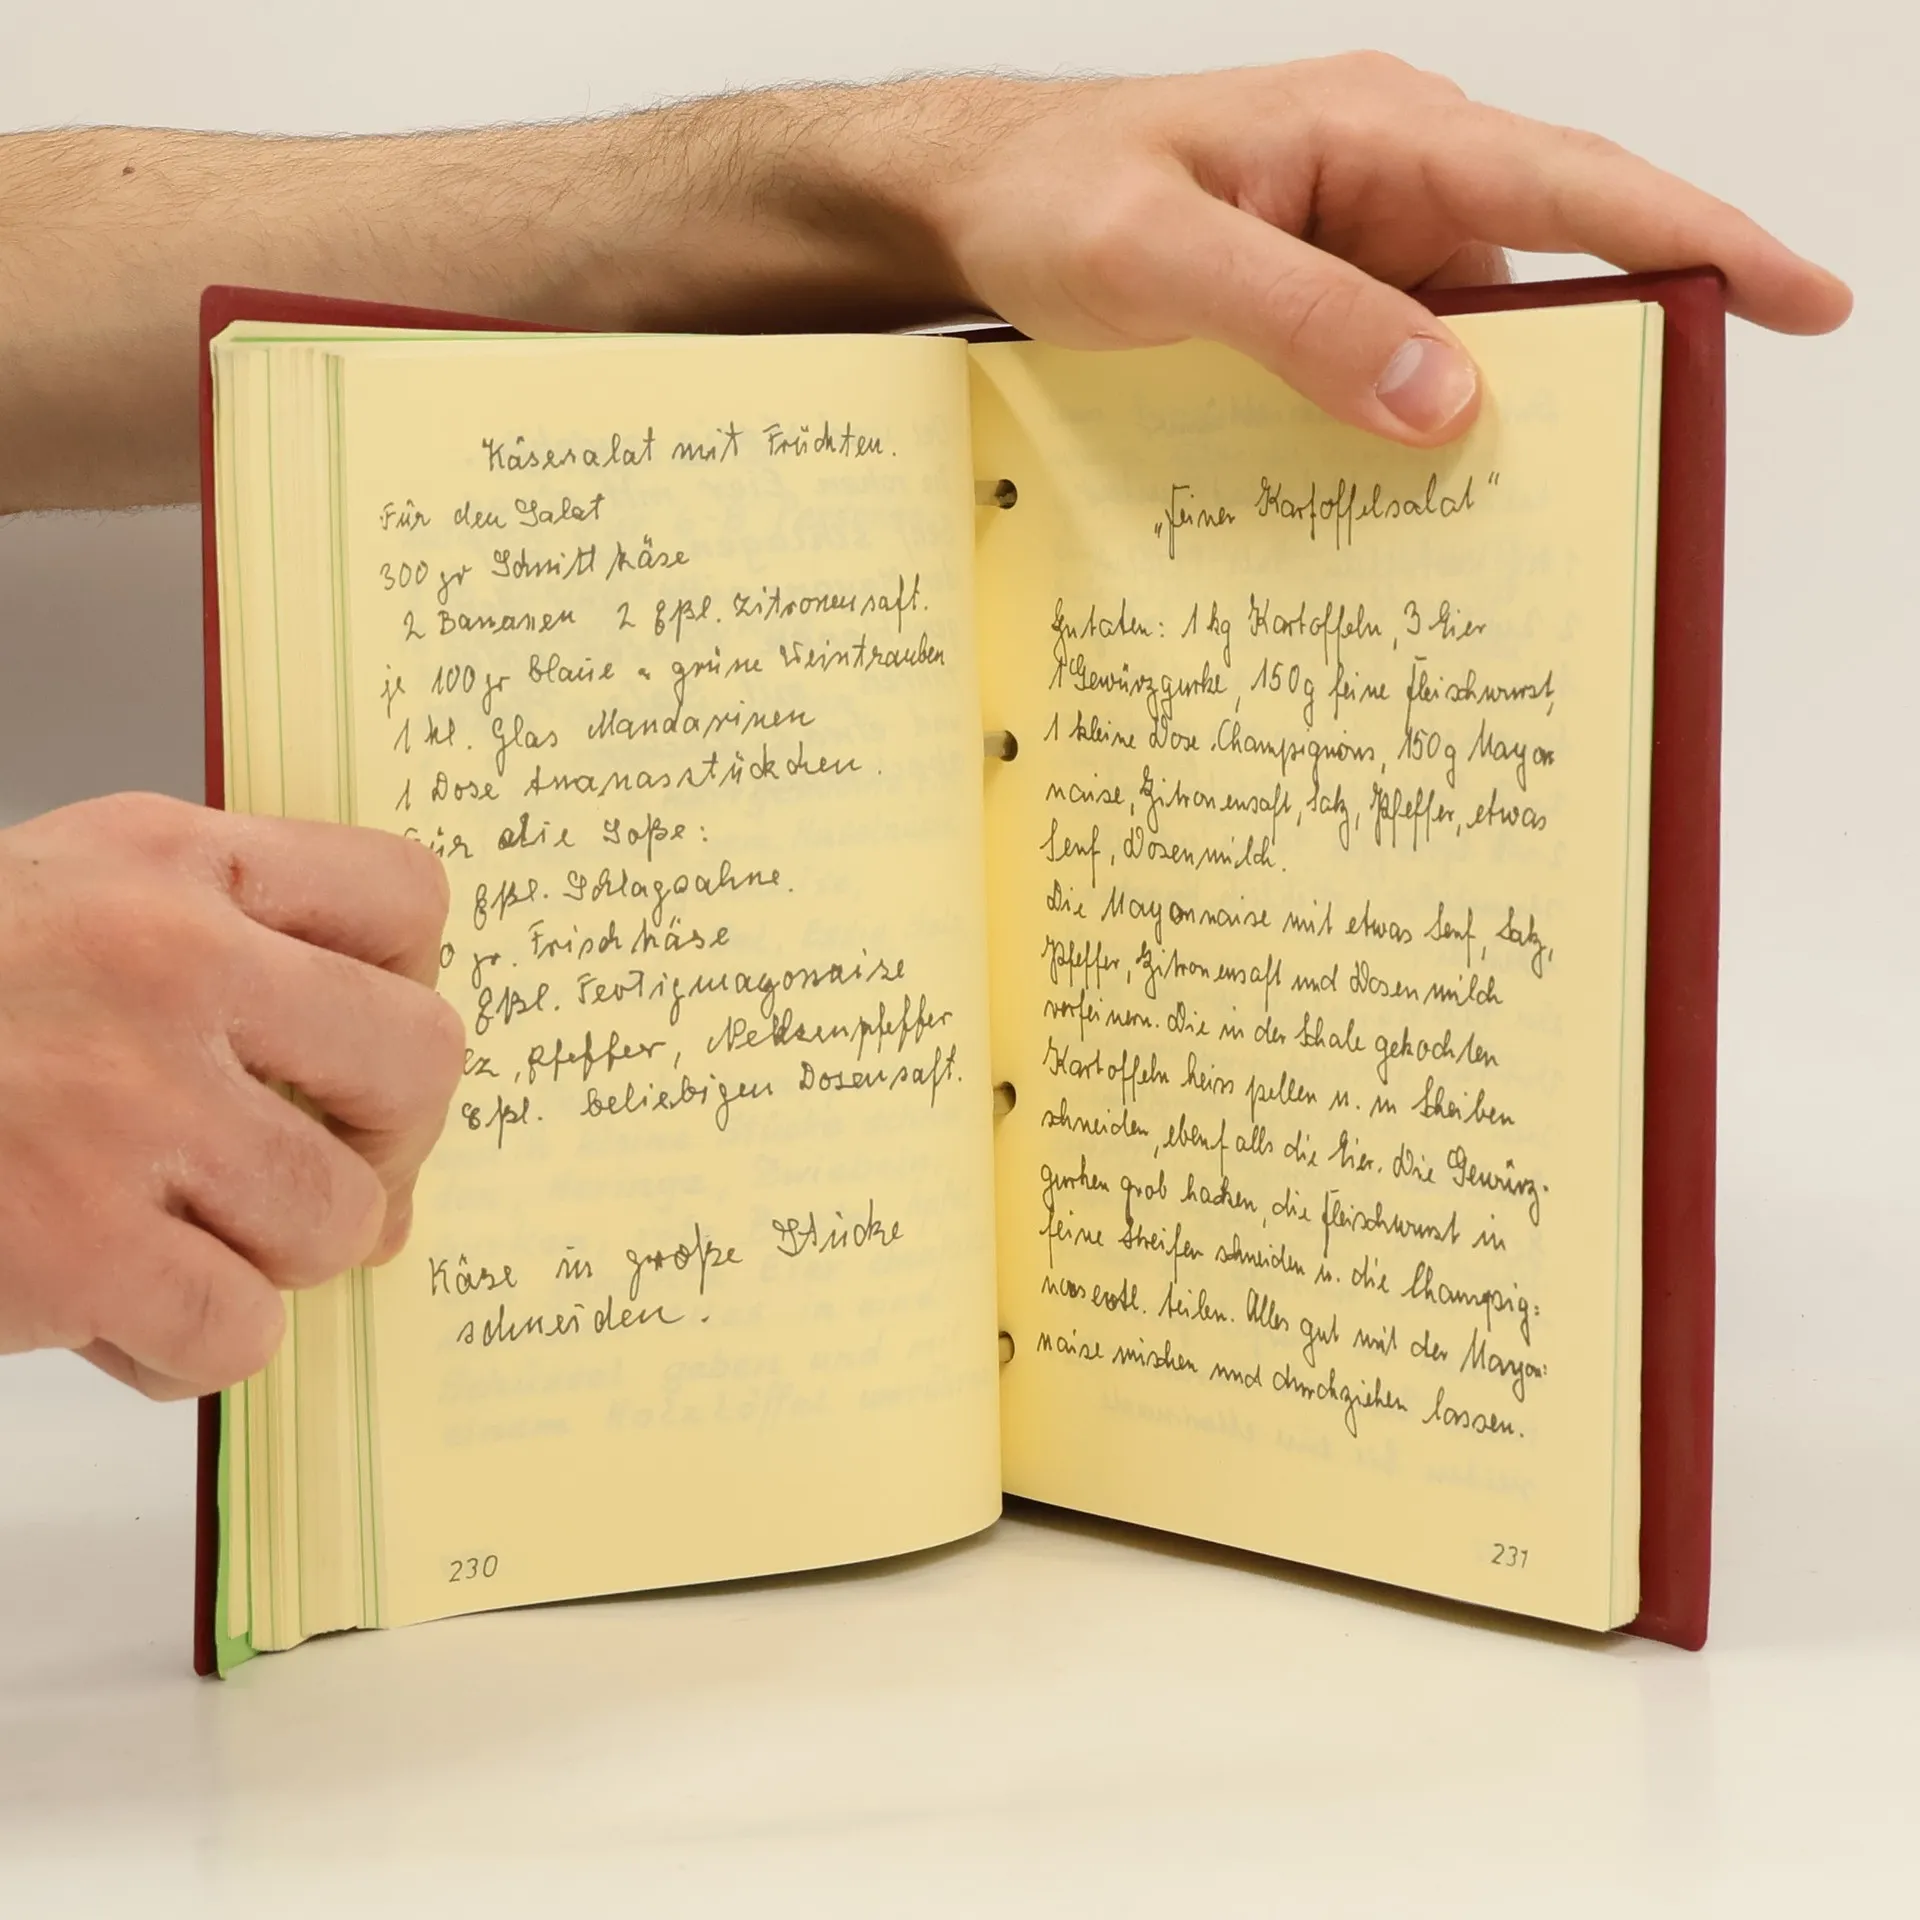 Käsesalat mit Früchten.
Für den Salat
300 gr Schnittkäse
2 Bananen 2 Eßl. Zitronensaft.
je 100 gr blaue u grüne Weintrauben
1 kl. Glas Mandarinen
1 Dose Ananasstückchen.
Für die Soße:
Eßl. Schlagsahne.
0 gr. Frischkäse
Eßl. Fertigmayonnaise
lz, Pfeffer, Nelkenpfeffer
Eßl. beliebigen Dosensaft.
Käse in große Stücke
schneiden.
230
„Feiner Kartoffelsalat"
Zutaten: 1 kg Kartoffeln, 3 Eier
1 Gewürzgurke, 150 g feine Fleischwurst,
1 kleine Dose Champignons, 150 g Mayon
naise, Zitronensaft, Salz, Pfeffer, etwas
Senf, Dosenmilch.
Die Mayonnaise mit etwas Senf, Salz,
Pfeffer, Zitronensaft und Dosenmilch
verfeinern. Die in der Schale gekochten
Kartoffeln heiss pellen u. in Scheiben
schneiden, ebenfalls die Eier. Die Gewürz-
gurken grob hacken, die Fleischwurst in
feine Streifen schneiden u. die Champig=
nons evtl. teilen. Alles gut mit der Mayon=
naise mischen und durchziehen lassen.
231